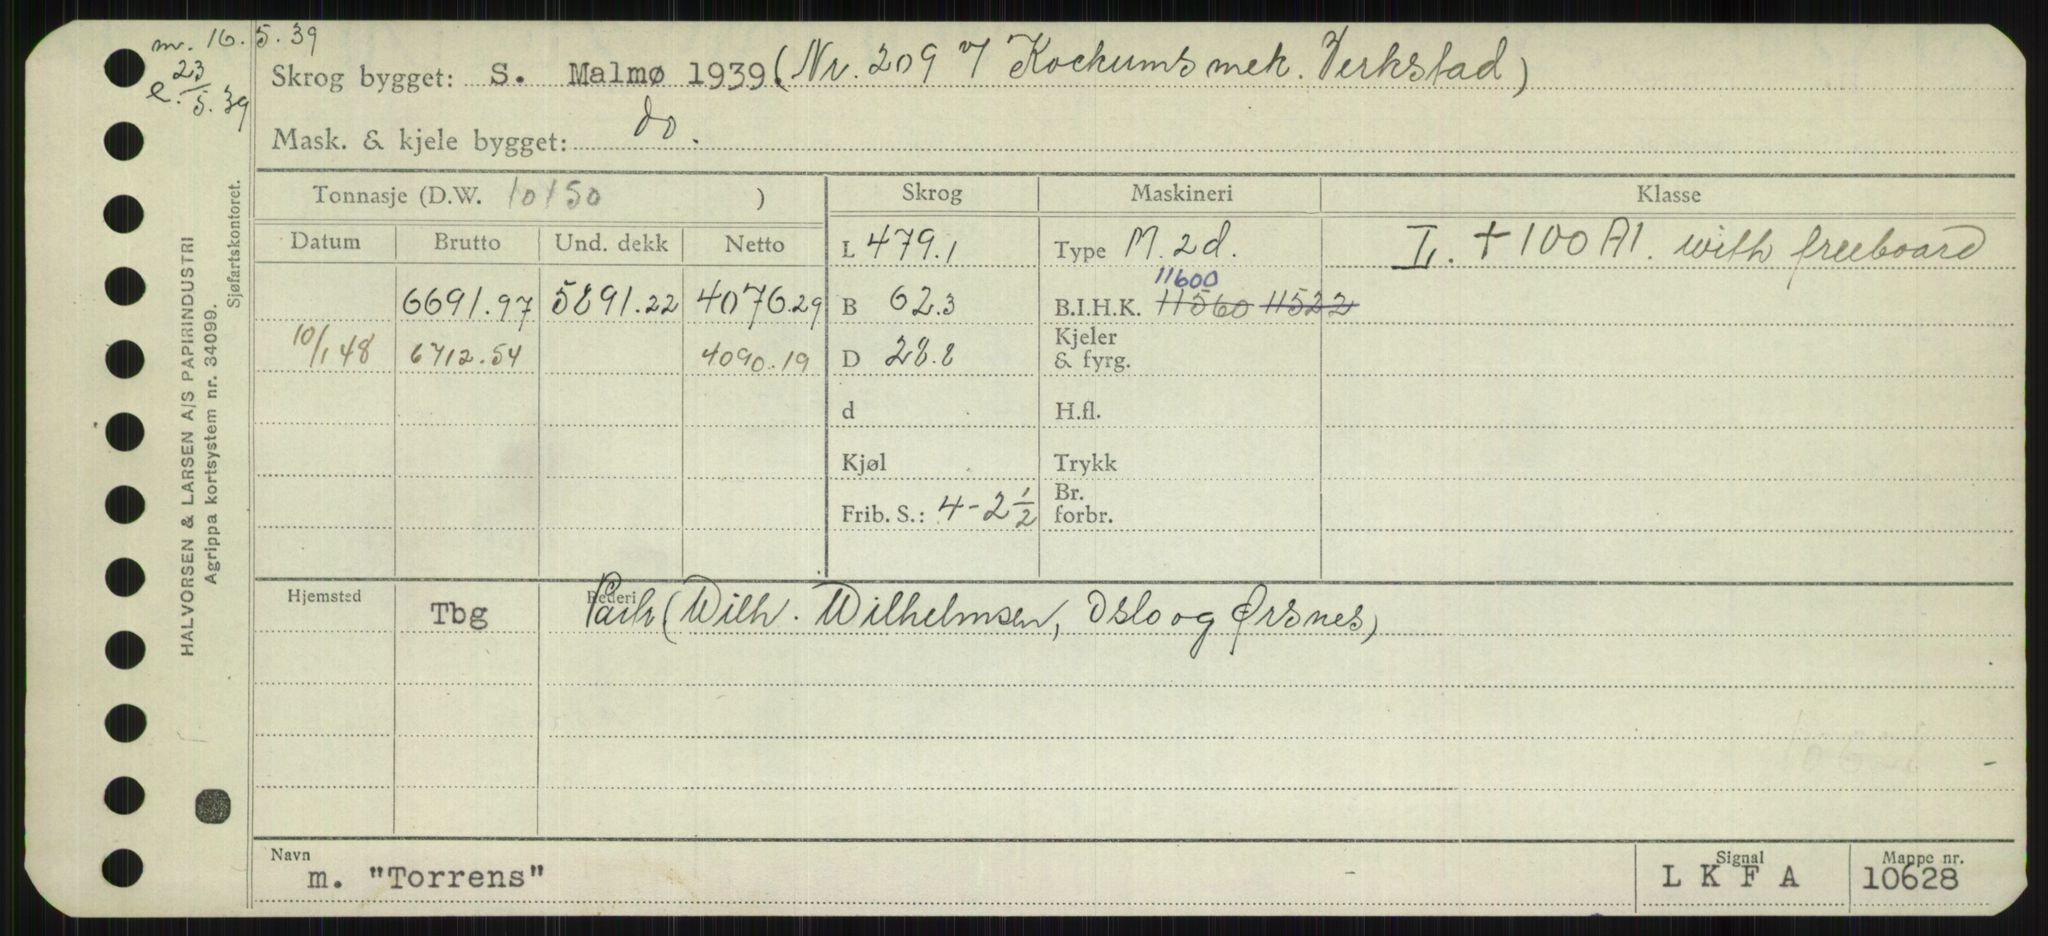 m. 16.5.39
e. 23/5.39
Skrog bygget: S. Malmø 1939. (Nr. 209 v/ Kockums mek. Verkstad)
Mask. & kjele bygget: do.
Tonnasje (D.W. 10150 ) Skrog Maskineri Klasse
Datum Brutto Und. dekk Netto L 479.1 Type M. 2d. L. + 100 A1. with freeboard
11600
6691.97 5891.22 4076.29 B 62.3 B.I.H.K. 11560 11522
10/1 48 6712.54 4090.19 D 28.8 Kjeler & fyrg.
d H.fl.
Kjøl Trykk
Frib. S.: 4-2 1/2 Br. forbr.
Hjemsted Rederi
Tbg (Wilh. Wilhelmsen, Oslo og Ørsnes)
Navn Signal Mappe nr.
m. "Torrens" L K F A 10628
HALVORSEN & LARSEN A/S PAPIRINDUSTRI
Agrippa kortsystem nr. 34099.
Sjøfartskontoret.